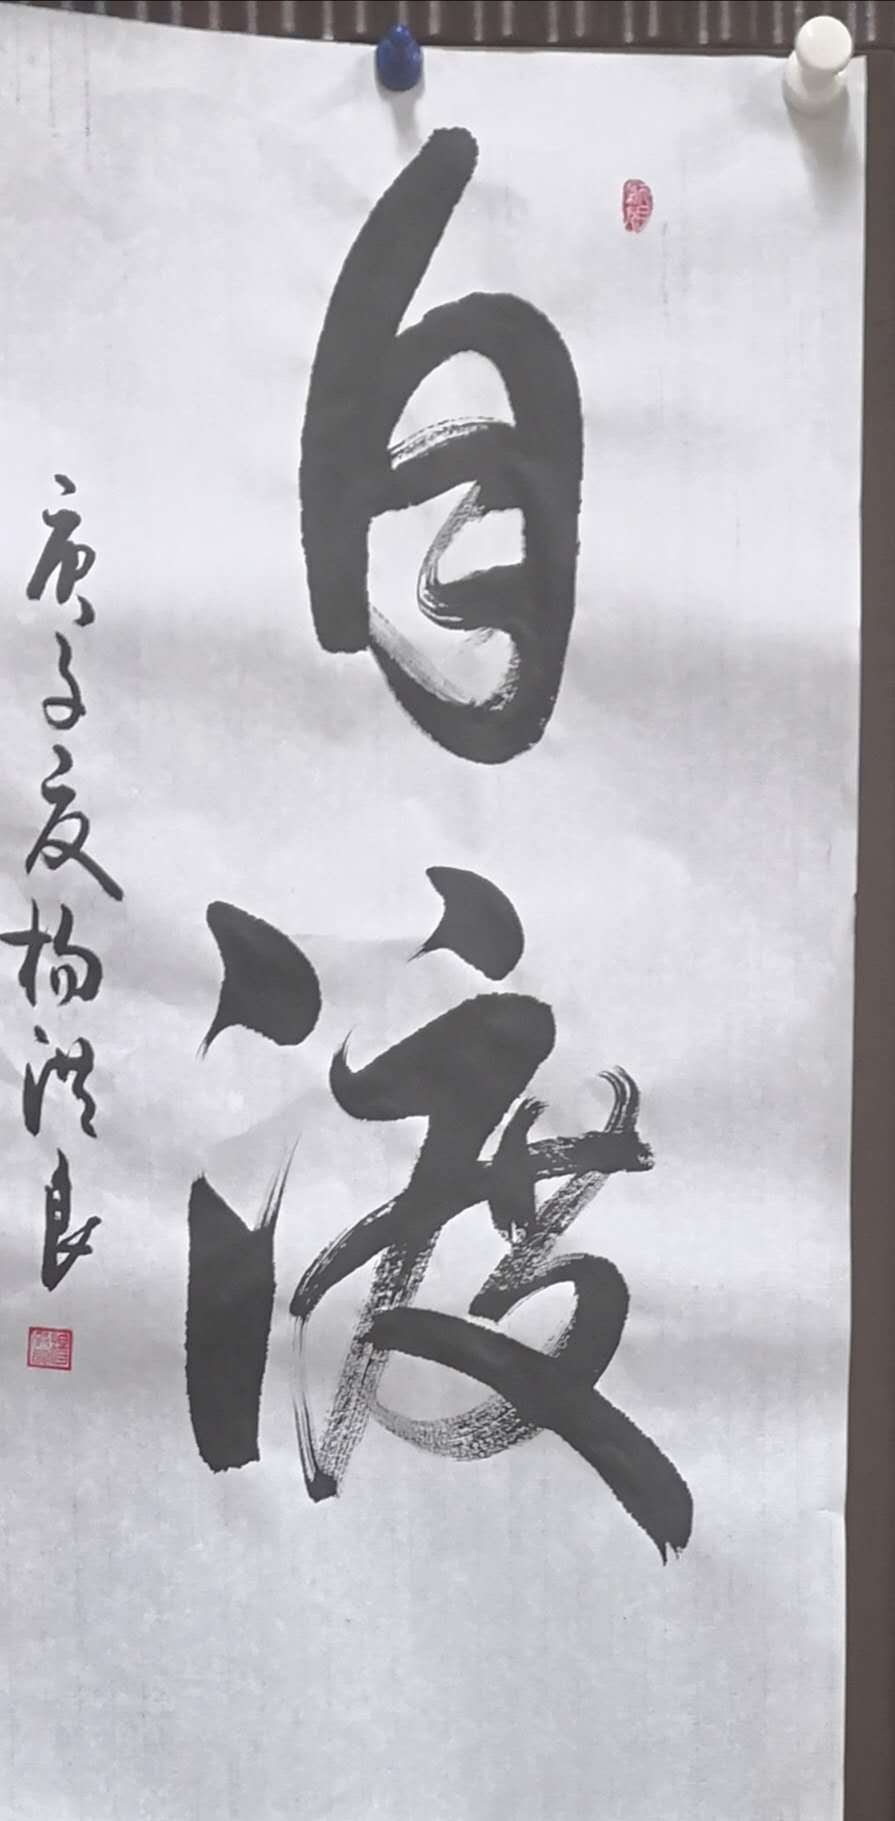 自渡
庚子夏杨洪良